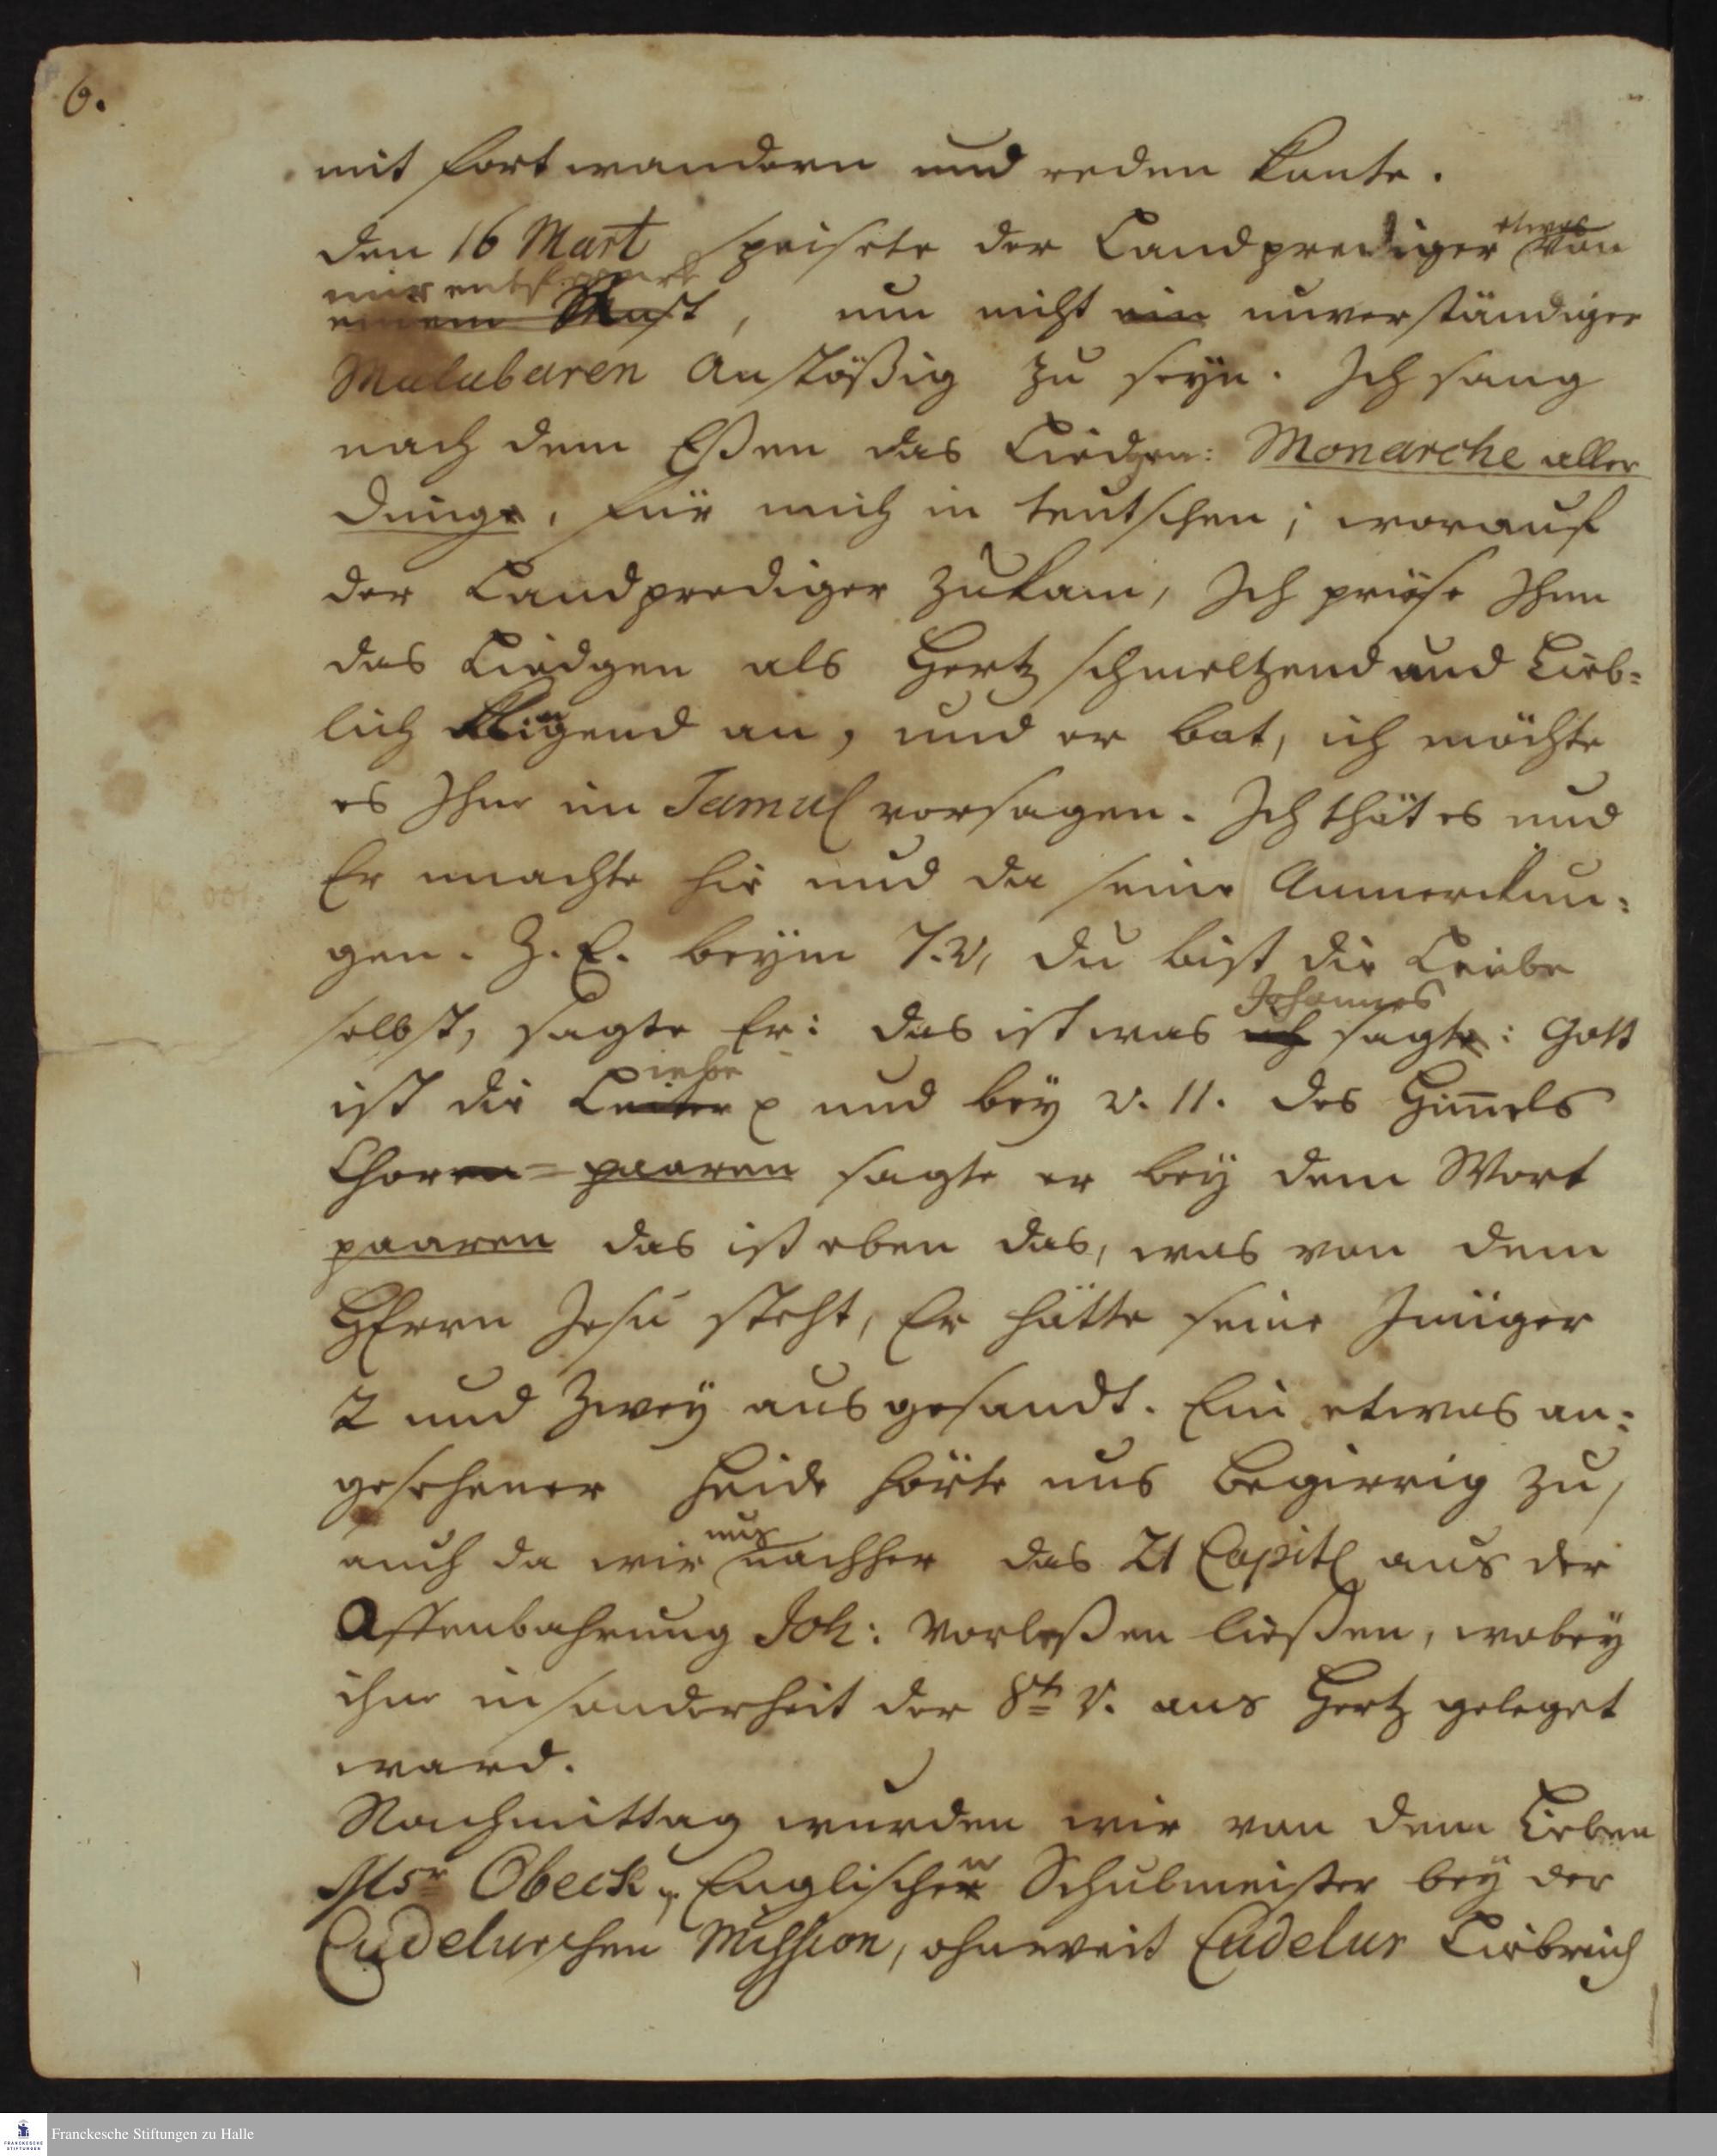 6.
mit fortwandern und reden konte.
den 16 Mart speisete der Landprediger etwas von
mir entfernt
einem Mast, um nicht ein unverständiger
Malabaren anstößig zu seyn. Ich sang
nach dem Eßen das Liedgen: Monarche aller
Dinge, für mich in teutschen; worauf
der Landprediger zukam, Ich priese Ihm
das Liedgen als Hertz schmeltzend und Lieb-
lich klingend an, und er bat, ich möchte
es Ihm im Tamul vorsagen. Ich that es und
Er machte hie und da seine Anmerckun-
gen. Z. E. beym 7. v, du bist die Liebe
selbst, sagte Er: das ist was ich Johannes sagte: Gott
ist die Liebe und bey v. 11. des Himels
Choren-paaren sagte er bey dem Wort
paaren das ist eben das, was von dem
HErrn Jesu steht, Er hätte seine Jünger
2 und Zwey ausgesandt. Ein etwas an-
gesehener Heide hörte uns begierig zu,
auch da wir uns nachher das 21 Capitl aus der
Offenbahrung Joh: vorleßen ließen, wobey
ihm insonderheit der 8te v. ans Hertz geleget
ward.
Nachmittag wurden wir von dem Lieben
Msr Obeck, Englischen Schulmeister bey der
Cudelurschen Mission, ohnweit Cudelur Liebreich
Franckesche Stiftungen zu Halle